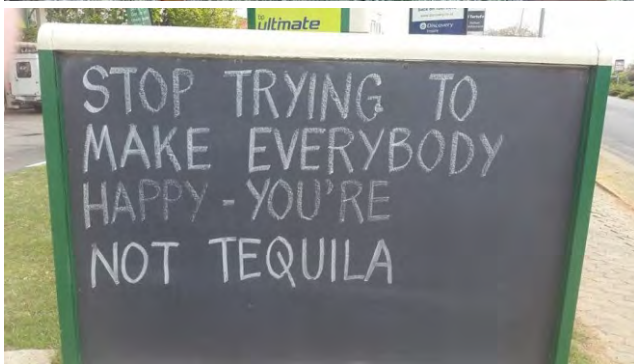 ultimate
Discovery
STOP TRYING TO
MAKE EVERYBODY
HAPPY - YOU'RE
NOT TEQUILA